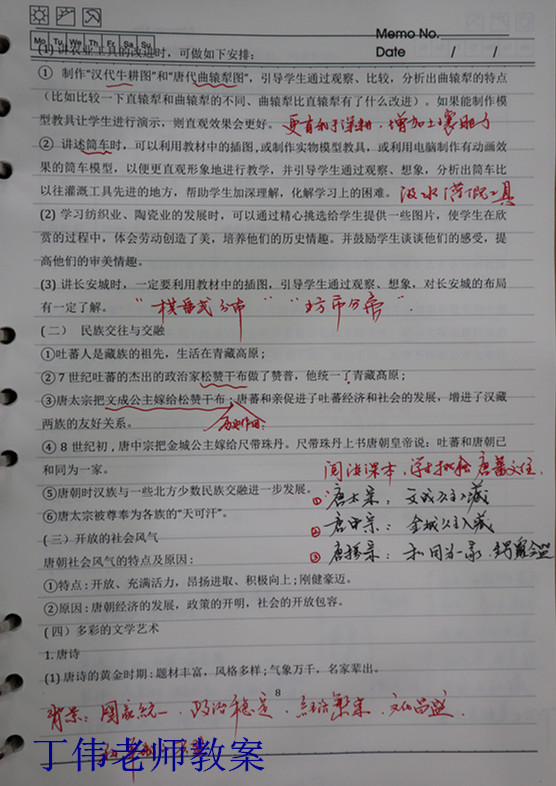 Memo No.
Mo Tu We Th Fr Sa Su
Date / /
(1) 讲农业工具的改进时，可做如下安排：
① 制作“汉代牛耕图”和“唐代曲辕犁图”，引导学生通过观察、比较，分析出曲辕犁的特点
（比如比较一下直辕犁和曲辕犁的不同、曲辕犁比直辕犁有了什么改进）。如果能制作模
型教具让学生进行演示，则直观效果会更好。 更有利于深耕，增加土壤肥力
② 讲述筒车时，可以利用教材中的插图,或制作实物模型教具，或利用电脑制作有动画效
果的筒车模型，以便更直观形象地进行教学，并引导学生通过观察、想象，分析出筒车比
以往灌溉工具先进的地方，帮助学生加深理解，化解学习上的困难。 汲水灌溉工具
(2) 学习纺织业、陶瓷业的发展时，可以通过精心挑选给学生提供一些图片，使学生在欣
赏的过程中，体会劳动创造了美，培养他们的历史情趣。并鼓励学生谈谈他们的感受，提
高他们的审美情趣。
(3) 讲长安城时，一定要利用教材中的插图，引导学生通过观察、想象，对长安城的布局
有一定了解。 “棋盘式分布” “坊市分离”.
(二） 民族交往与交融
①吐蕃人是藏族的祖先，生活在青藏高原；
②7世纪吐蕃的杰出的政治家松赞干布做了赞普，他统一了青藏高原；
③唐太宗把文成公主嫁给松赞干布；唐蕃和亲促进了吐蕃经济和社会的发展，增进了汉藏
两族的友好关系。 历史作用:
④8世纪初，唐中宗把金城公主嫁给尺带珠丹。尺带珠丹上书唐朝皇帝说：吐蕃和唐朝已
和同为一家。
阅读课本，学生找出唐蕃交往.
⑤唐朝时汉族与一些北方少数民族交融进一步发展。 ①唐太宗: 文成公主入藏
⑥唐太宗被尊奉为各族的“天可汗”。 ②唐中宗: 金城公主入藏
(三）开放的社会风气
唐朝社会风气的特点及原因： ③唐穆宗: 和同为一家 会盟
①特点：开放、充满活力，昂扬进取、积极向上；刚健豪迈。
②原因：唐朝经济的发展，政策的开明，社会的开放包容。
(四）多彩的文学艺术
1.唐诗
(1) 唐诗的黄金时期：题材丰富，风格多样；气象万千，名家辈出。
8
背景: 国家统一，政治稳定，经济繁荣，文化昌盛.
丁伟老师教案